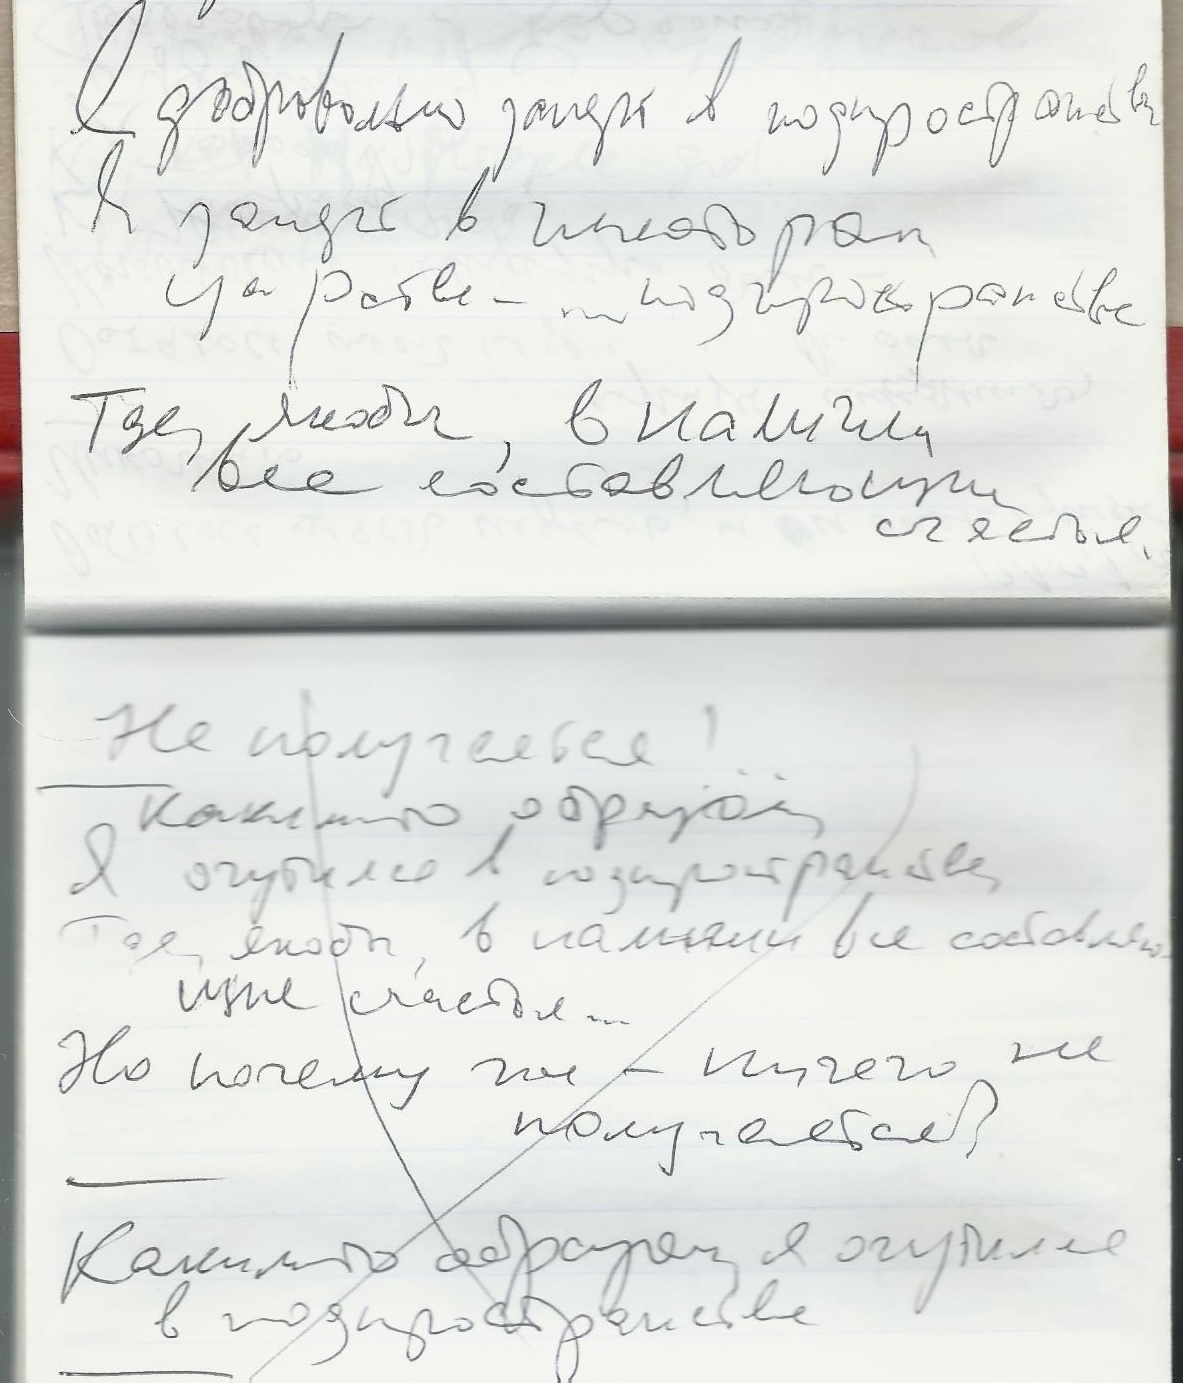 Я добровольно заперт в подпространстве
Я заперт в некотором
царстве – подпространстве
Где, якобы, в наличии
все составляющие
счастья.
Не получается!
Каким-то образом
Я очутился в подпространстве,
Где, якобы, в наличии все составляю-
щие счастья...
Но почему же – ничего не
получается?
Каким-то образом я очутился
в подпространстве